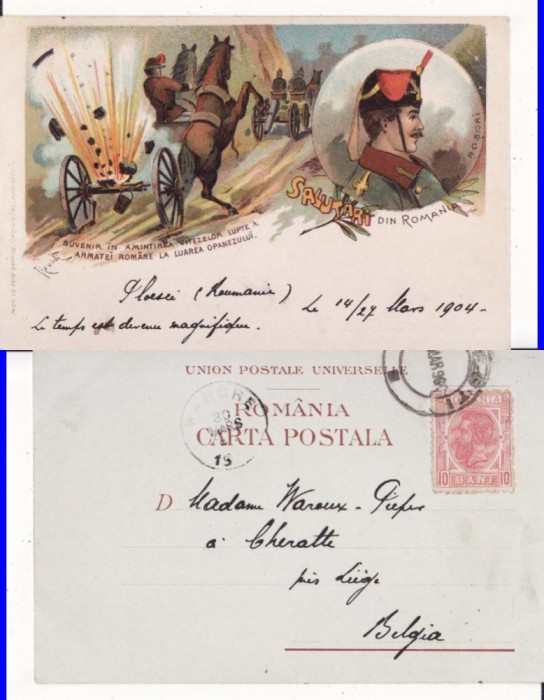 R.O.ȘIORĬ
SALUTĂRI
DIN ROMANIA
SUVENIR ÎN AMINTIREA VITEZELOR LUPTE A
ARMATEI ROMÂNE LA LUAREA OPANEZULUI.
Ploesci (Roumanie)
Le 14/27 Mars 1904-
Le temps est devenu magnifique.
UNION POSTALE UNIVERSELLE
ROMÂNIA
CARTA POSTALA
30
MARS
15
ROMANIA
10 BANI 10
D Madame Waroux-Pieper
à Cheratte
près Liége
Belgia